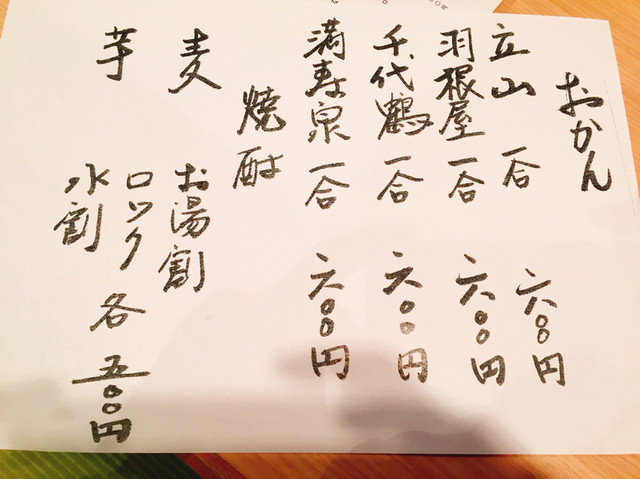 おかん
立山 一合 六〇〇円
羽根屋 一合 六〇〇円
千代鶴 一合 六〇〇円
満寿泉 一合 六〇〇円
焼酎
麦 お湯割
芋 ロック 各 五〇〇円
水割